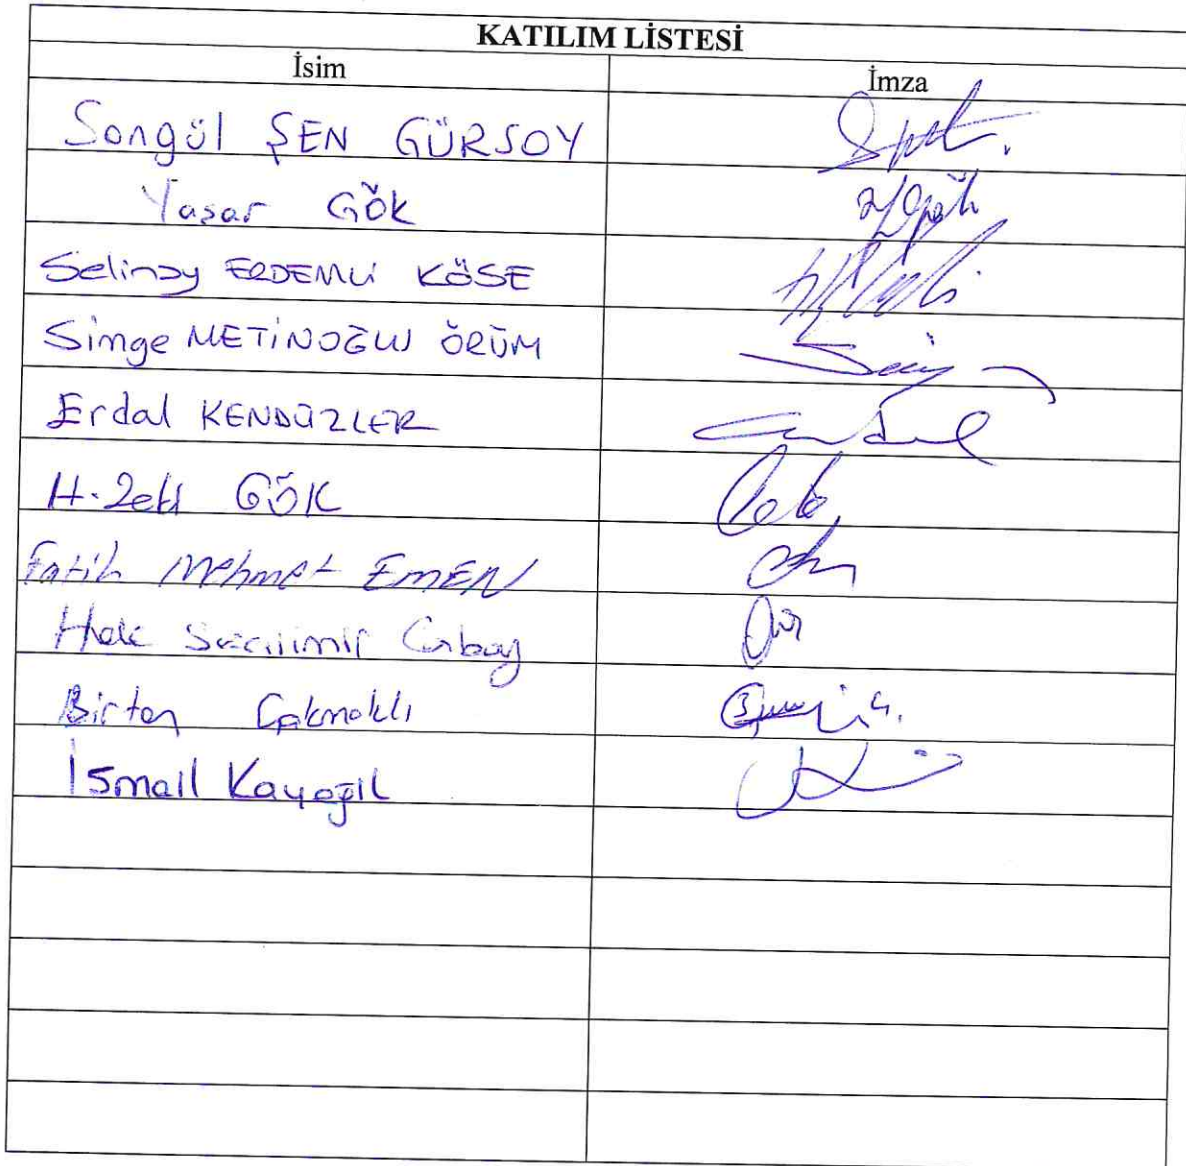 KATILIM LİSTESİ
İsim İmza
Songül ŞEN GÜRSOY
Yasar GÖK
Selinay ERDEMLİ KÖSE
Simge METİNOĞLU ÖRÜM
Erdal KENDÜZLER
H. Zeki GÖK
Fatih Mehmet EMEN
Birten Çakmaklı
İsmail Kayağil